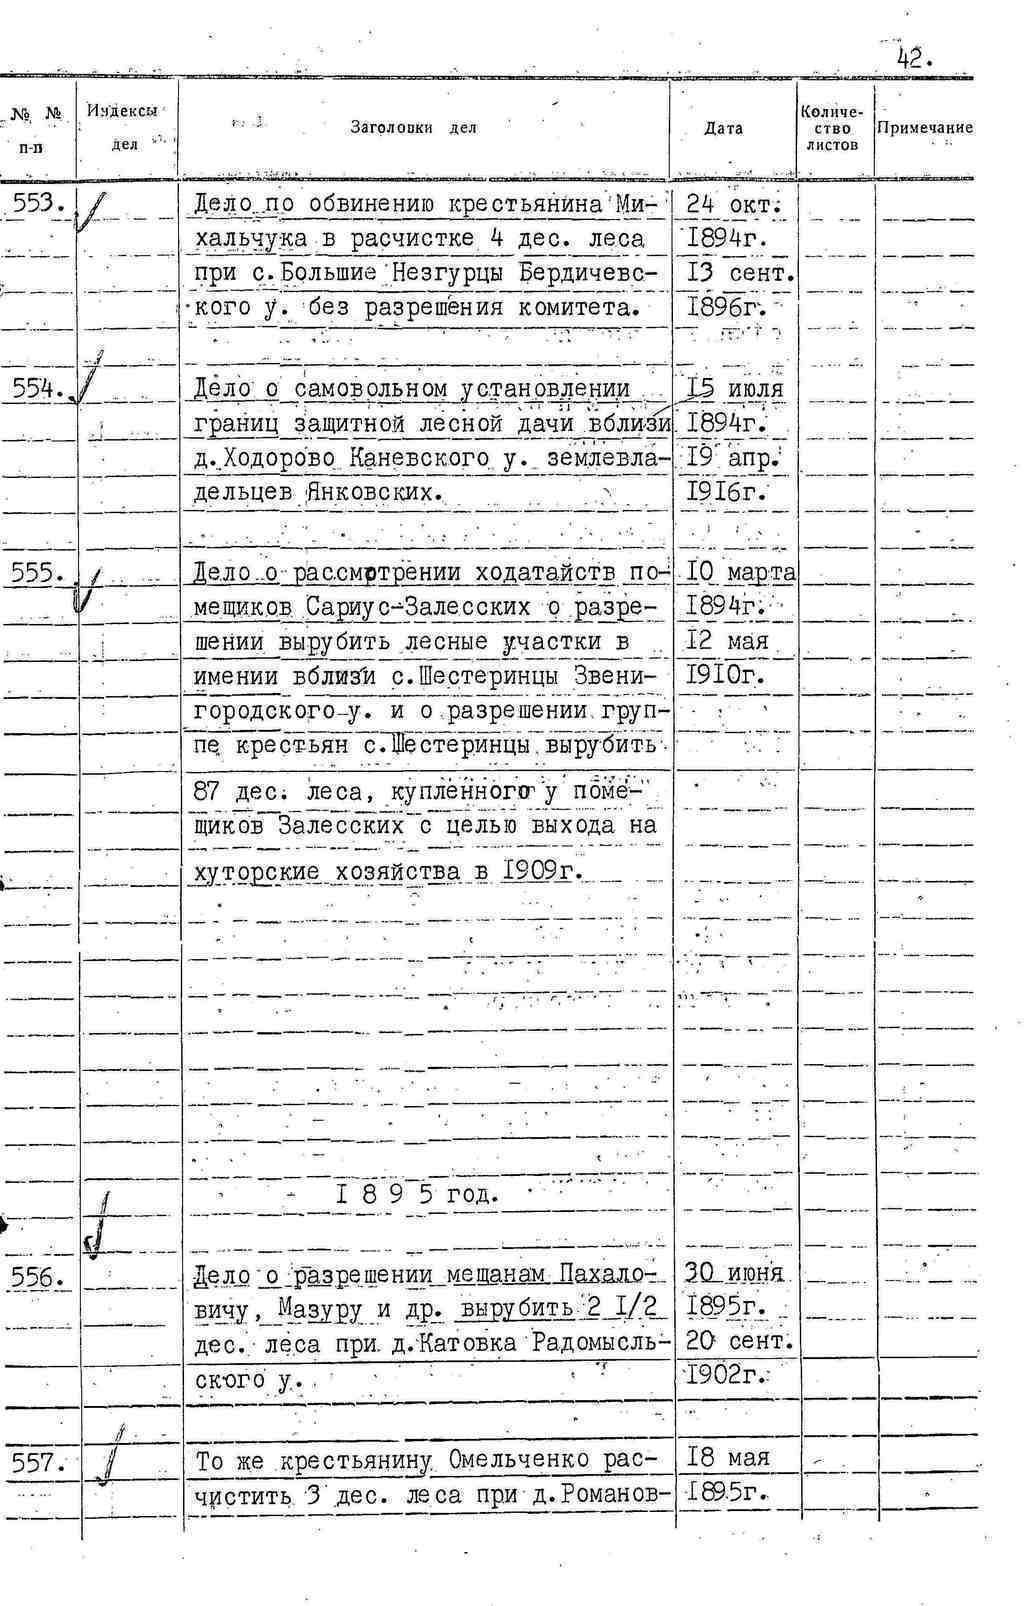 42.
№ № п-п Индексы дел Заголовки дел Дата Количе- ство листов Примечание
553. Дело по обвинению крестьянина Ми- 24 окт.
хальчука в расчистке 4 дес. леса 1894г.
при с.Большие Незгурцы Бердичевс- 13 сент.
кого у. без разрешения комитета. 1896г.
554. Дело о самовольном установлении 15 июля
границ защитной лесной дачи вблизи 1894г.
д.Ходорово Каневского у. землевла- 19 апр.
дельцев Янковских. 1916г.
555. Дело о рассмотрении ходатайств по- 10 марта
мещиков Сариус-Залесских о разре- 1894г.
шении вырубить лесные участки в 12 мая
имении вблизи с.Шестеринцы Звени- 1910г.
городского у. и о разрешении груп-
пе крестьян с.Шестеринцы вырубить
87 дес. леса, купленного у поме-
щиков Залесских с целью выхода на
хуторские хозяйства в 1909г.
1 8 9 5 год.
556. Дело о разрешении мещанам Пахало- 30 июня
вичу, Мазуру и др. вырубить 2 1/2 1895г.
дес. леса при д.Катовка Радомысль- 20 сент.
ского у. 1902г.
557. То же крестьянину Омельченко рас- 18 мая
чистить 3 дес. леса при д.Романов- 1895г.